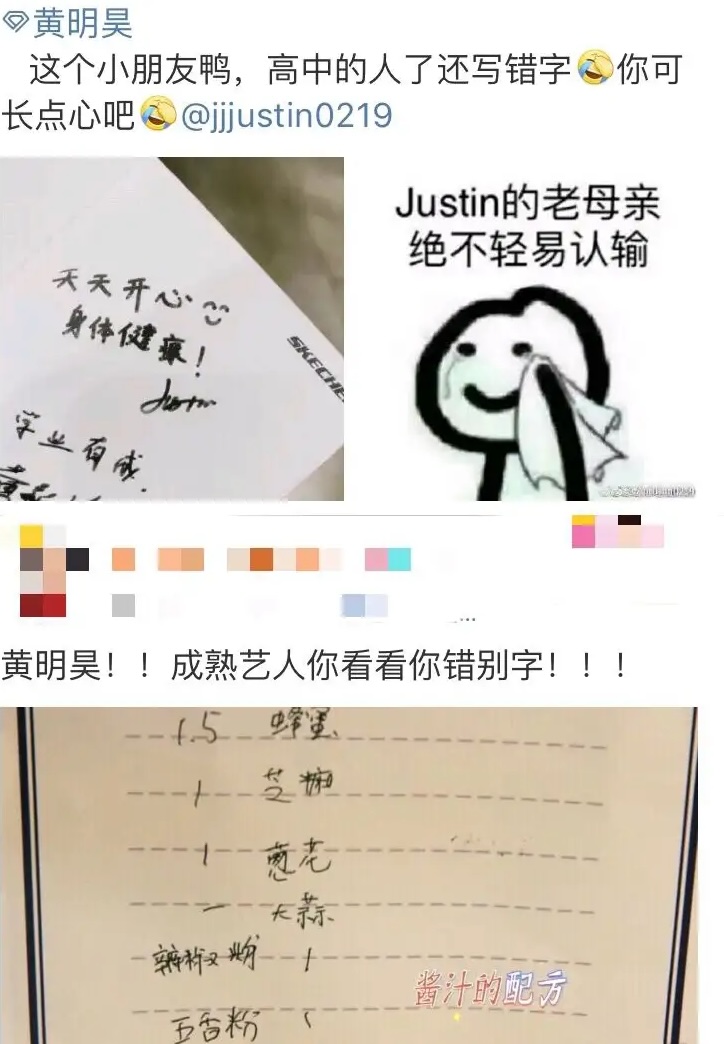 黄明昊
这个小朋友鸭，高中的人了还写错字🤣你可
长点心吧🤣@jjjustin0219
天天开心
身体健康！
Justin
学业有成.
SKECHE
Justin的老母亲
绝不轻易认输
...
黄明昊！！成熟艺人你看看你错别字！！！
1.5 蜂蜜
1 芝麻
1 葱花
一 大蒜
辣椒粉 1
五香粉 1
酱汁的配方